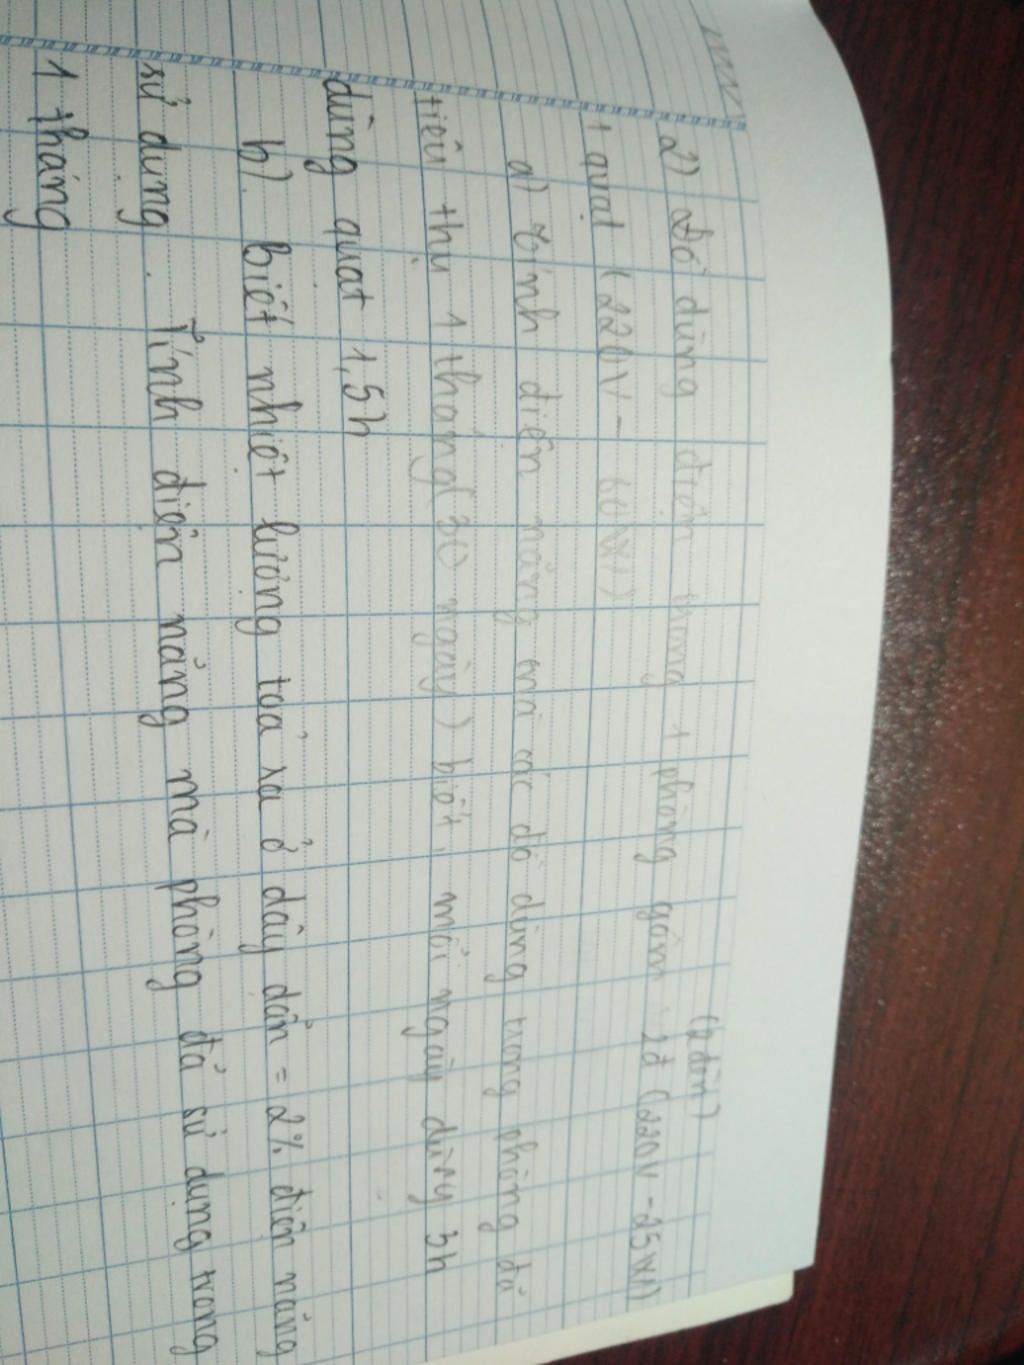 (2 đèn)
2) Đồ dùng điện trong 1 phòng gồm 2đ (220V - 25W)
1 quạt (220V - 60W)
a) Tính điện năng mà các đồ dùng trong phòng đã
tiêu thụ 1 tháng (30 ngày) biết mỗi ngày dùng 5h
dùng quạt 1,5h
b) biết nhiệt lượng toả ra ở dây dẫn = 2% điện năng
sử dụng. Tính điện năng mà phòng đã sử dụng trong
1 tháng